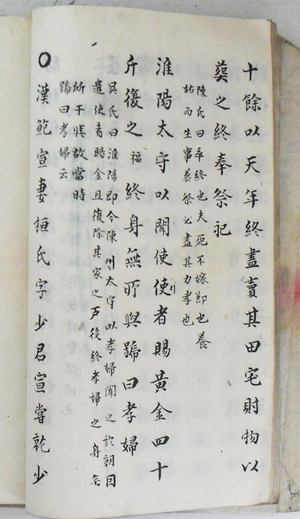 十餘以天年終盡賣其田宅財物以
葬之終奉祭祀
陳氏曰卒終也夫死不嫁節也養
姑而生事葬祭必盡其力孝也
淮陽太守以聞使使者賜黃金四十
斤復之福終身無所與號曰孝婦
吳氏曰淮陽即今陳州太守以孝婦聞之於朝因
遣使者賜金且復除其家之戶役終孝婦之身無
所干與故當時
號曰孝婦云
○漢鮑宣妻桓氏字少君宣嘗就少